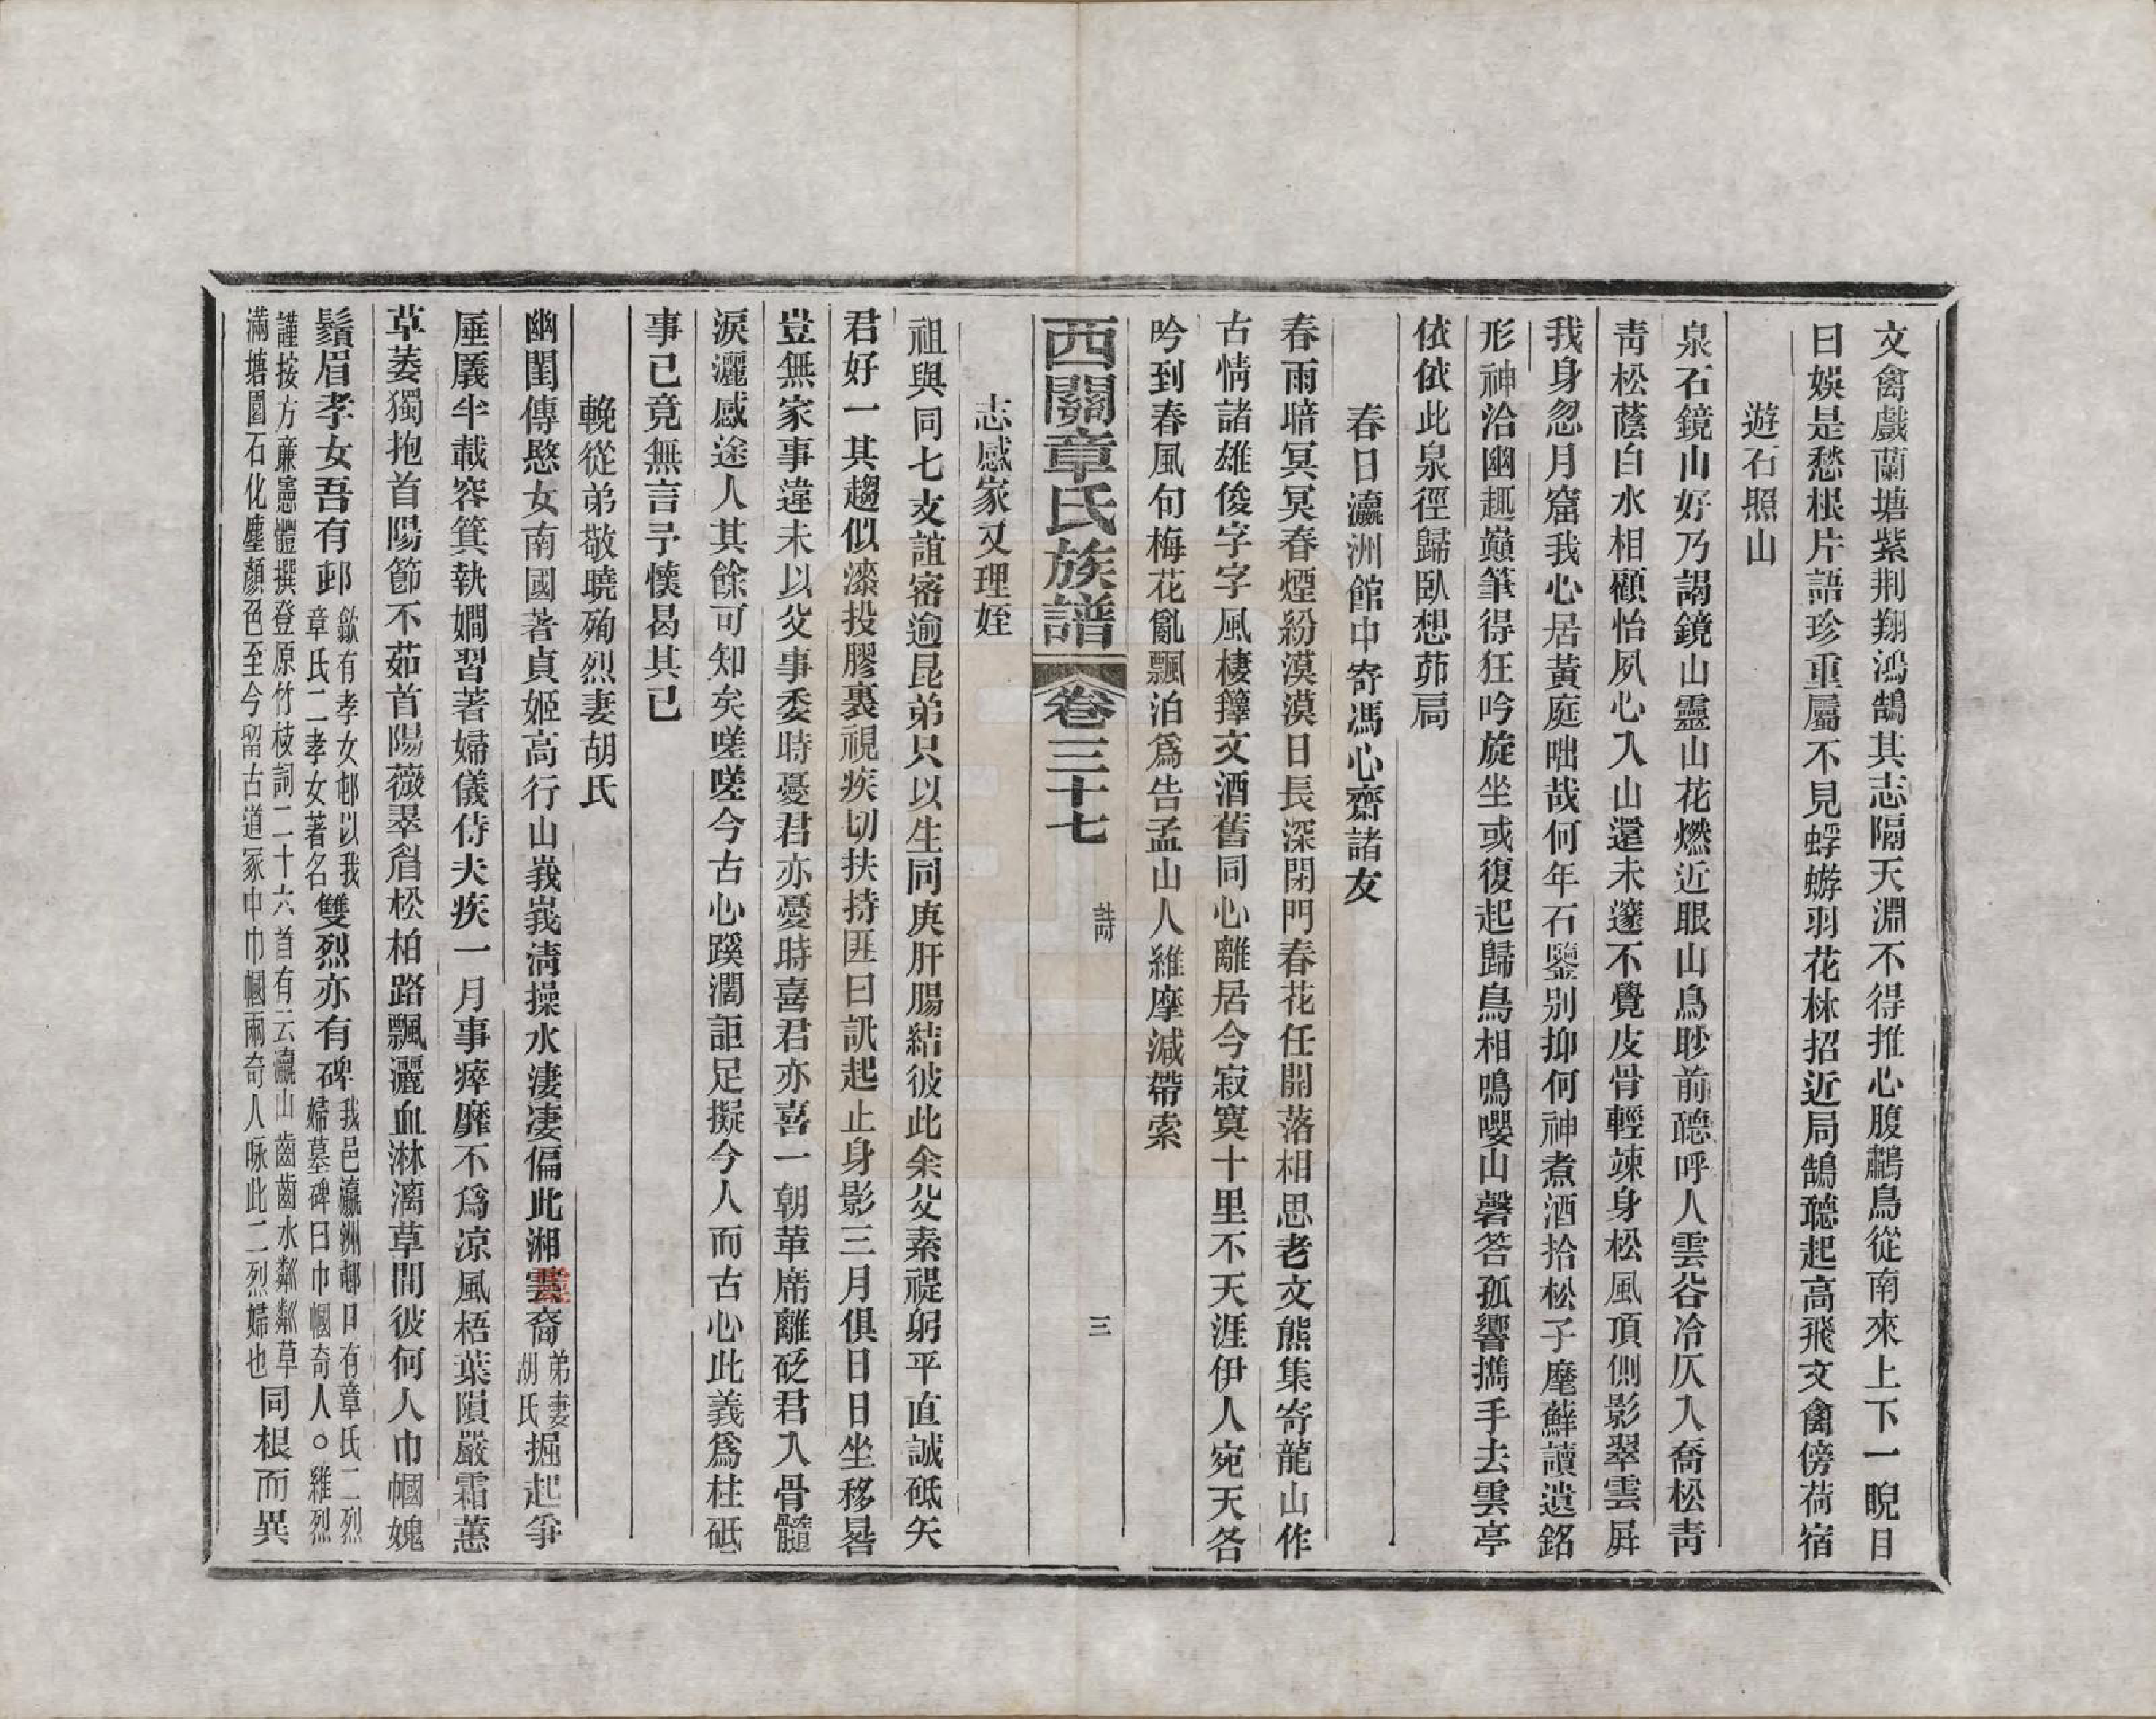 文禽戲蘭塘紫荆翔鴻鵠其志隔天淵不得推心腹鷫鳥從南來上下一睨目
曰娛是愁根片語珍重屬不見蜉蝣羽花林招近局鵠聽起高飛文禽傍荷宿
遊石照山
泉石鏡山好乃謁鏡山靈山花燃近眼山鳥眇前聽呼人雲谷冷仄入喬松靑
靑松蔭白水相顧怡夙心入山還未邃不覺皮骨輕竦身松風頂側影翠雲屛
我身忽月窟我心居黃庭咄哉何年石鑒别抑何神煮酒拾松子麾蘚讀遺銘
形神洽幽趣巔筆得狂吟旋坐或復起歸鳥相鳴嚶山磬答孤響攜手去雲亭
依依此泉徑歸臥想茆局
春日瀛洲館中寄馮心齋諸友
春雨暗冥冥春煙紛漠漠日長深閉門春花任開落相思老文熊集寄龍山作
古情諸雄俊字字風棲籜文酒舊同心離居今寂寞十里不天涯伊人宛天各
吟到春風句梅花亂飄泊爲告孟山人維摩減帶索
西關章氏族譜 卷三十七 詩 三
志感家又理姪
祖與同七支誼密逾昆弟只以生同庚肝腸結彼此余父素禔躬平直誠砥矢
君好一其趨似漆投膠裏視疾切扶持匪曰訊起止身影三月俱日日坐移晷
豈無家事違未以父事委時憂君亦憂時喜君亦喜一朝萆席離砭君入骨髓
淚灑感途人其餘可知矣嗟嗟今古心蹊濶詎足擬今人而古心此義爲柱砥
事已竟無言予懐曷其已
輓從弟敬曉殉烈妻胡氏
幽閨傳愍女南國著貞姬高行山峩峩淸操水淒淒偏此湘雲裔弟妻胡氏掘起爭
厜㕒半載容箕執嫺習著婦儀侍夫疾一月事瘁靡不爲凉風梧葉隕嚴霜蕙
草萎獨抱首陽節不茹首陽薇翠眉松柏路飄灑血淋漓草間彼何人巾幗媿
鬚眉孝女吾有邨歙有孝女邨以我章氏二孝女著名雙烈亦有碑我邑瀛洲邨口有章氏二烈婦墓碑曰巾幗奇人○雜烈
謹按方廉憲體撰登原竹枝詞二十六首有云瀛山齒齒水粼粼草
滿塘園石化塵顏色至今留古道冢中巾幗兩奇人咏此二烈婦也同根而異